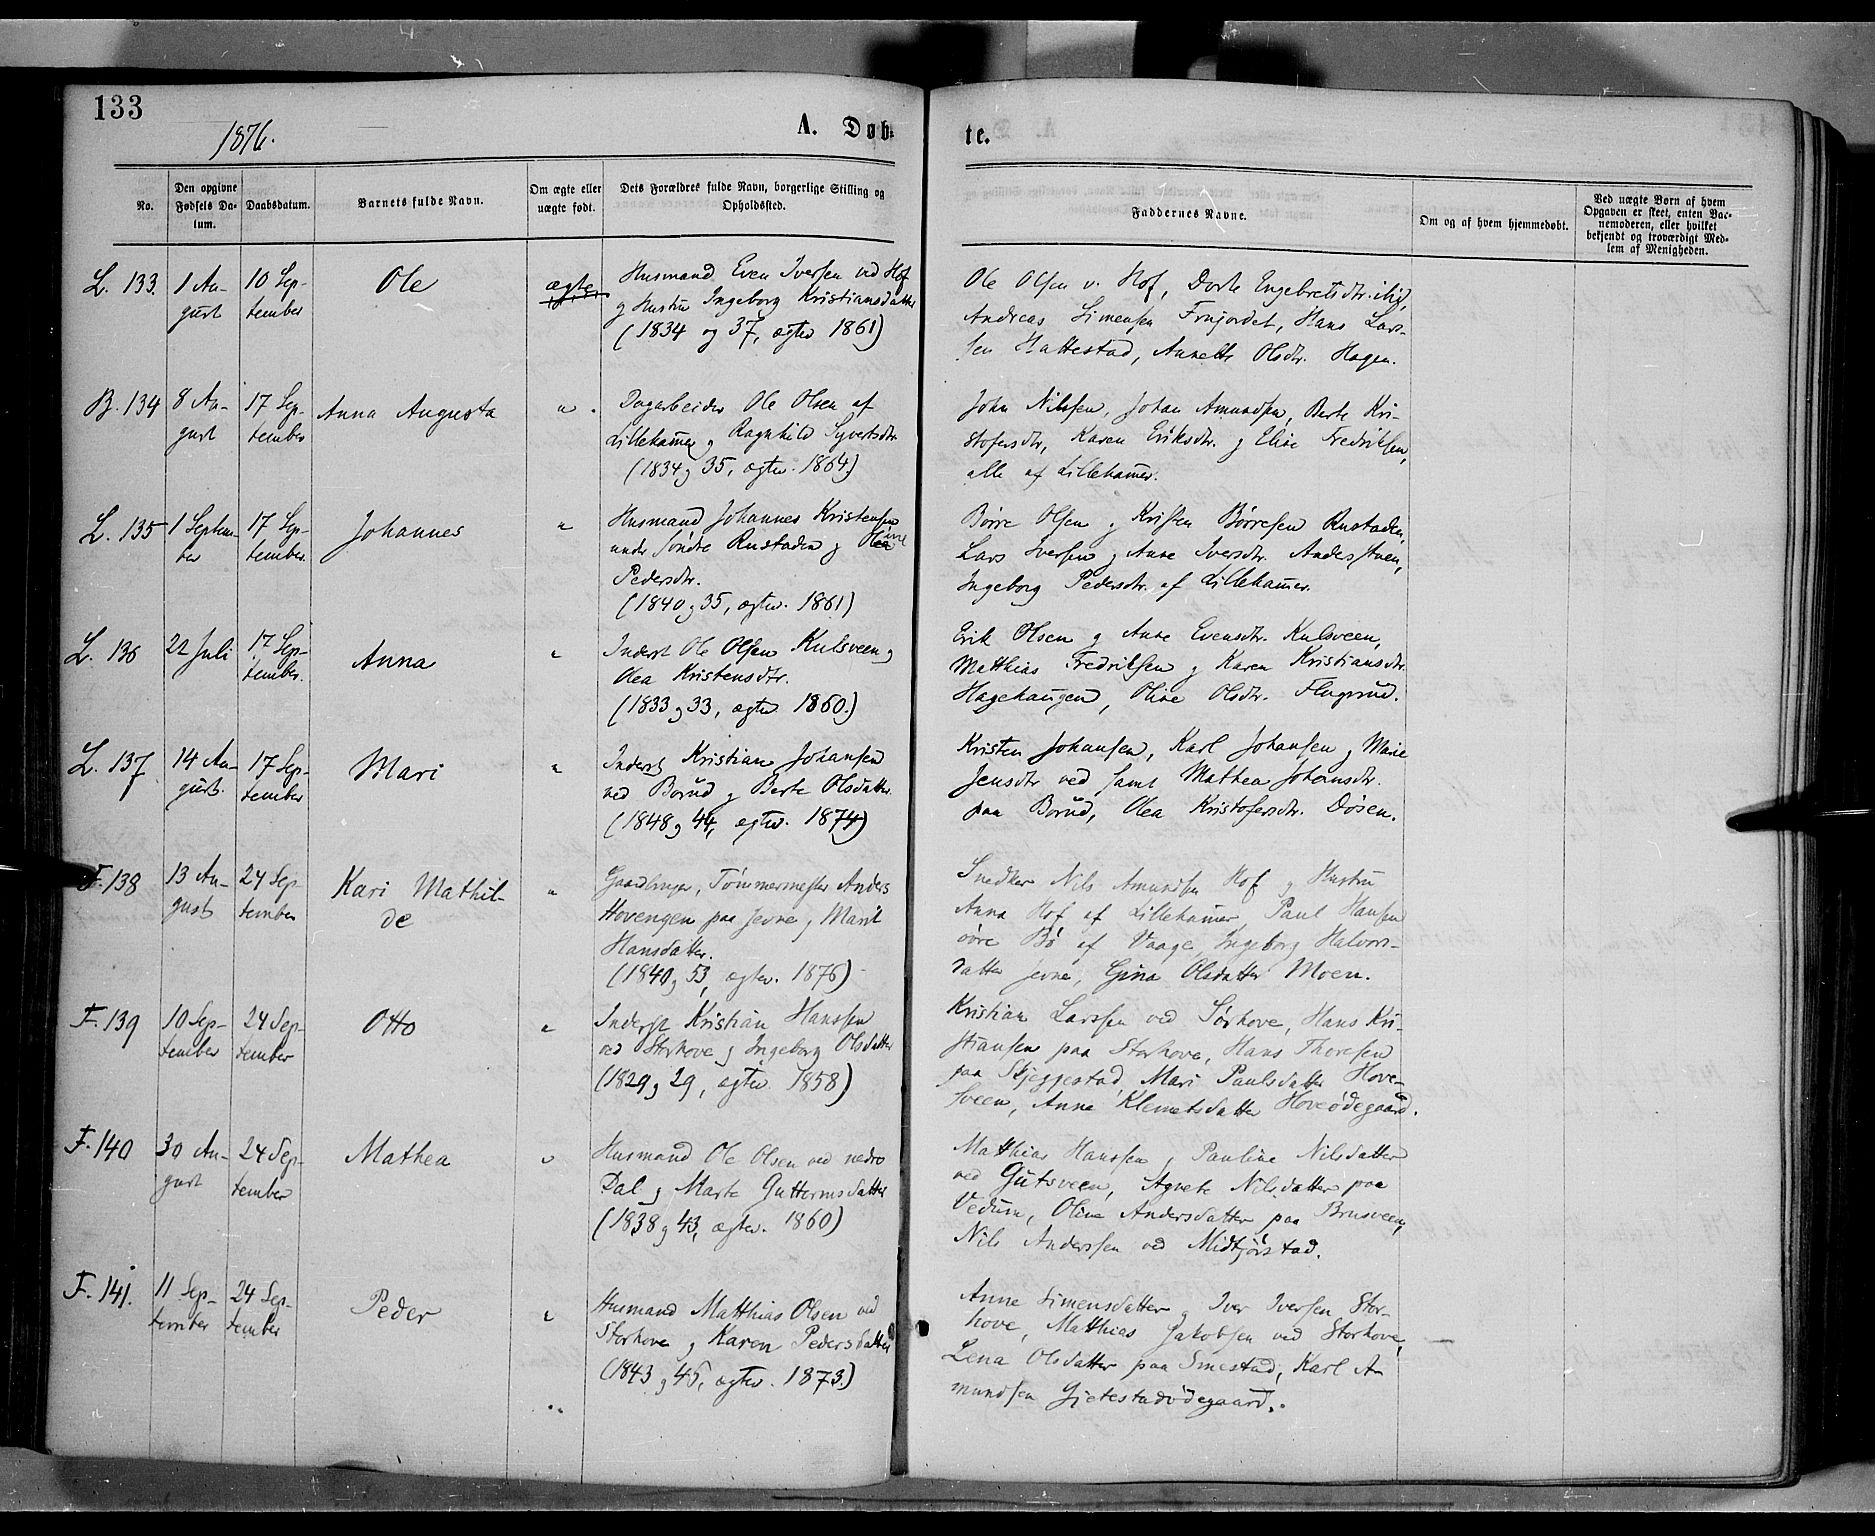 133
1876.
A. Døb-
te.
No.
Den opgivne Fødsels Da-
tum.
Daabsdatum.
Barnets fulde Navn.
Om ægte eller
uægte født.
Dets Forældres fulde Navn, borgerlige Stilling og
Opholdssted.
Faddernes Navne.
Om og af hvem hjemmedøbt.
Ved uægte Børn af hvem
Opgaven er skeet, enten Bar-
nemoderen, eller hvilket
bekjendt og troværdigt Med-
lem af Menigheden.
L. 133. 1 Au-
gust
10 Sep-
tember
Ole
ægte
Husmand Even Iversen ved Hof
og Hustru Ingeborg Kristiansdatter
(1834 og 37, ægtev 1861)
Ole Olsen v. Hof, Dorte Engebretsdtr. ibid,
Andreas Simensen Frujordet, Hans Lars-
sen Hattestad, Annette Olsdtr. Hagen.
B. 134 8 Au-
gust
17 Sep-
tember
Anna Augusta
"
Dagarbeider Ole Olsen af
Lillehamer og Ragnhild Syvertsdtr.
(1834 og 35, ægtev. 1864)
John Nilssen, Johan Amundsen, Berte Kri-
stofersdtr, Karen Eriksdtr. og Eline Fredriksen,
alle af Lillehamer.
L. 135 1 Septem-
ber
17 Sep-
tember.
Johannes
"
Husmand Johannes Kristensen
under søndre Rustaden og Oline
Pedersdtr.
(1840 og 35, ægtev. 1861)
Børre Olsen og Kristen Børresen Rustaden,
Lars Iversen og Anne Iversdtr. Anderstuen,
Ingeborg Pedersdtr. af Lillehamer.
L. 136 22 Juli
17 Sep-
tember.
Anna
"
Inderst Ole Olsen Kulsveen og
Olea Kristensdtr.
(1833 og 33, ægtev. 1860.)
Erik Olsen og Anne Evensdtr. Kulsveen,
Matthias Fredriksen og Karen Kristiansdtr.
Hagehaugen, Oline Olsdtr. Flugsrud.
L. 137 14 Au-
gust.
17 Sep-
tember
Mari
"
Inderst Kristian Johansen
ved Borud og Berte Olsdatter
(1848 og 44, ægtev. 1874)
Kristen Johansen, Karl Johansen og Marie
Jensdtr ved samt Mathea Johansdtr.
paa Borud, Olea Kristofersdtr. Døsen.
F. 138 13 Au-
gust
24 Sep
tember
Kari Mathil-
de
"
Gaardbruger, Tømmermester Anders
Hovengen paa Jevne og Marit
Hansdatter.
(1840 og 53, ægtev. 1876)
Snedker Nils Amundsen Hof og Hustru
Anna Hof af Lillehamer, Paul Hansen
øvre Bø af Vaage, Ingeborg Halvors-
datter Jevne, Gina Olsdatter Moen.
F. 139 10 Sep-
tember
24 Sep-
tember
Otto
"
Inderst Kristian Hanssen
ved Storhove og Ingeborg Olsdatter
(1829 og 29, ægtev. 1858)
Kristian Larssen ved Sørhove, Hans Kri-
stiansen paa Storhove, Hans Thoresen
paa Skjeggestad, Mari Paulsdatter Hove-
sveen, Anne Klemetsdatter Hoveødegaard.
F. 140 30 Au-
gust
24 Sep-
tember
Mathea
"
Husmand Ole Olsen ved nedre
Dal og Marte Guttormsdatter
(1838 og 43, ægtev. 1860)
Matthias Hanssen og Pauline Nilsdatter
ved Gutsveen, Agnete Nilsdatter paa
Vedum, Oline Andersdatter paa Brusveen,
Nils Anderssen ved Midtjørstad.
F. 141. 11 Sep-
tember
24 Sep-
tember
Peder
"
Husmand Matthias Olsen ved
Storhove og Karen Pedersdatter
(1843 og 45, ægtev. 1873.)
Anne Simensdatter og Iver Iversen Stor-
hove, Matthias Jakobsen ved Storhove,
Lena Olsdatter paa Smestad, Karl A-
mundsen Gjetestadødegaard.